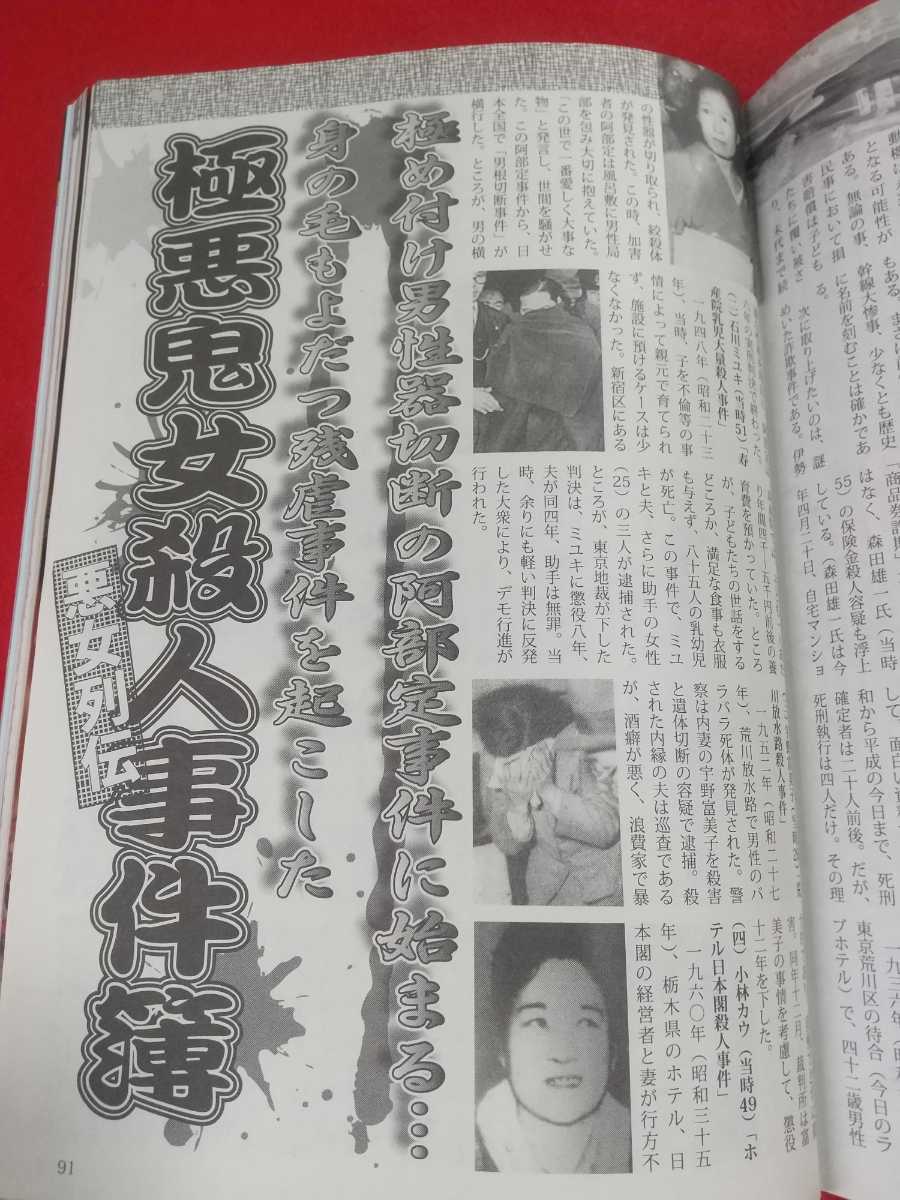 極め付け男性器切断の阿部定事件に始まる…
身の毛もよだつ残虐事件を起こした
極悪鬼女殺人事件簿
悪女列伝
の性器が切り取られ、絞殺体
が発見された。この時、加害
者の阿部定は風呂敷に男性局
部を包み大切に抱えていた。
「この世で一番愛しく大事な
物」と発言し、世間を騒がせ
た。この阿部定事件から、日
本全国で「男根切断事件」が
横行した。ところが、男の横
(二)石川ミユキ(当時51)「寿
産院乳児大量殺人事件」
一九四八年(昭和二十三
年)、当時、子を不倫等の事
情によって親元で育てられ
ず、施設に預けるケースは少
なくなかった。新宿区にある
り年間四千〜五千円前後の養
育費を預かっていた。ところ
が、子どもたちの世話をする
どころか、満足な食事も衣服
も与えず、八十五人の乳幼児
が死亡。この事件で、ミユ
キと夫、さらに助手の女性
(25)の三人が逮捕された。
ところが、東京地裁が下した
判決は、ミユキに懲役八年、
夫が同四年、助手は無罪。当
時、余りにも軽い判決に反発
した大衆により、デモ行進が
行われた。
川放水路殺人事件」
一九五二年(昭和二十七
年)、荒川放水路で男性のバ
ラバラ死体が発見された。警
察は内妻の宇野富美子を殺害
と遺体切断の容疑で逮捕。殺
された内縁の夫は巡査である
が、酒癖が悪く、浪費家で暴
害。同年十二月、裁判所は富
美子の事情を考慮して、懲役
十二年を下した。
(四)小林カウ(当時49)「ホ
テル日本閣殺人事件」
一九六〇年(昭和三十五
年)、栃木県のホテル、日
本閣の経営者と妻が行方不
91
となる可能性が
ある。無論の事、
民事において損
害賠償は子ども
たちに覆い被さ
り、末代まで続
もある。
幹線大惨事、少なくとも歴史
に名前を刻むことは確かであ
る。
次に取り上げたいのは、謎
めいた詐欺事件である。伊勢
「商品券詐欺」
はなく、森田雄一氏(当時
55)の保険金殺人容疑も浮上
している。(森田雄一氏は今
年四月二十日、自宅マンショ
和から平成の今日まで、死刑
確定者は二十人前後。だが、
死刑執行は四人だけ。その理
一九三六年(昭
東京荒川区の待合(今日のラ
ブホテル)で、四十二歳男性